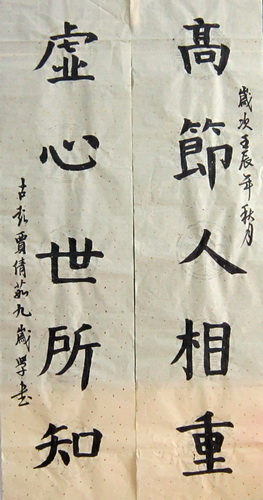 高節人相重
歲次壬辰年秋月
虛心世所知
古彭賈倩茹九歲學書